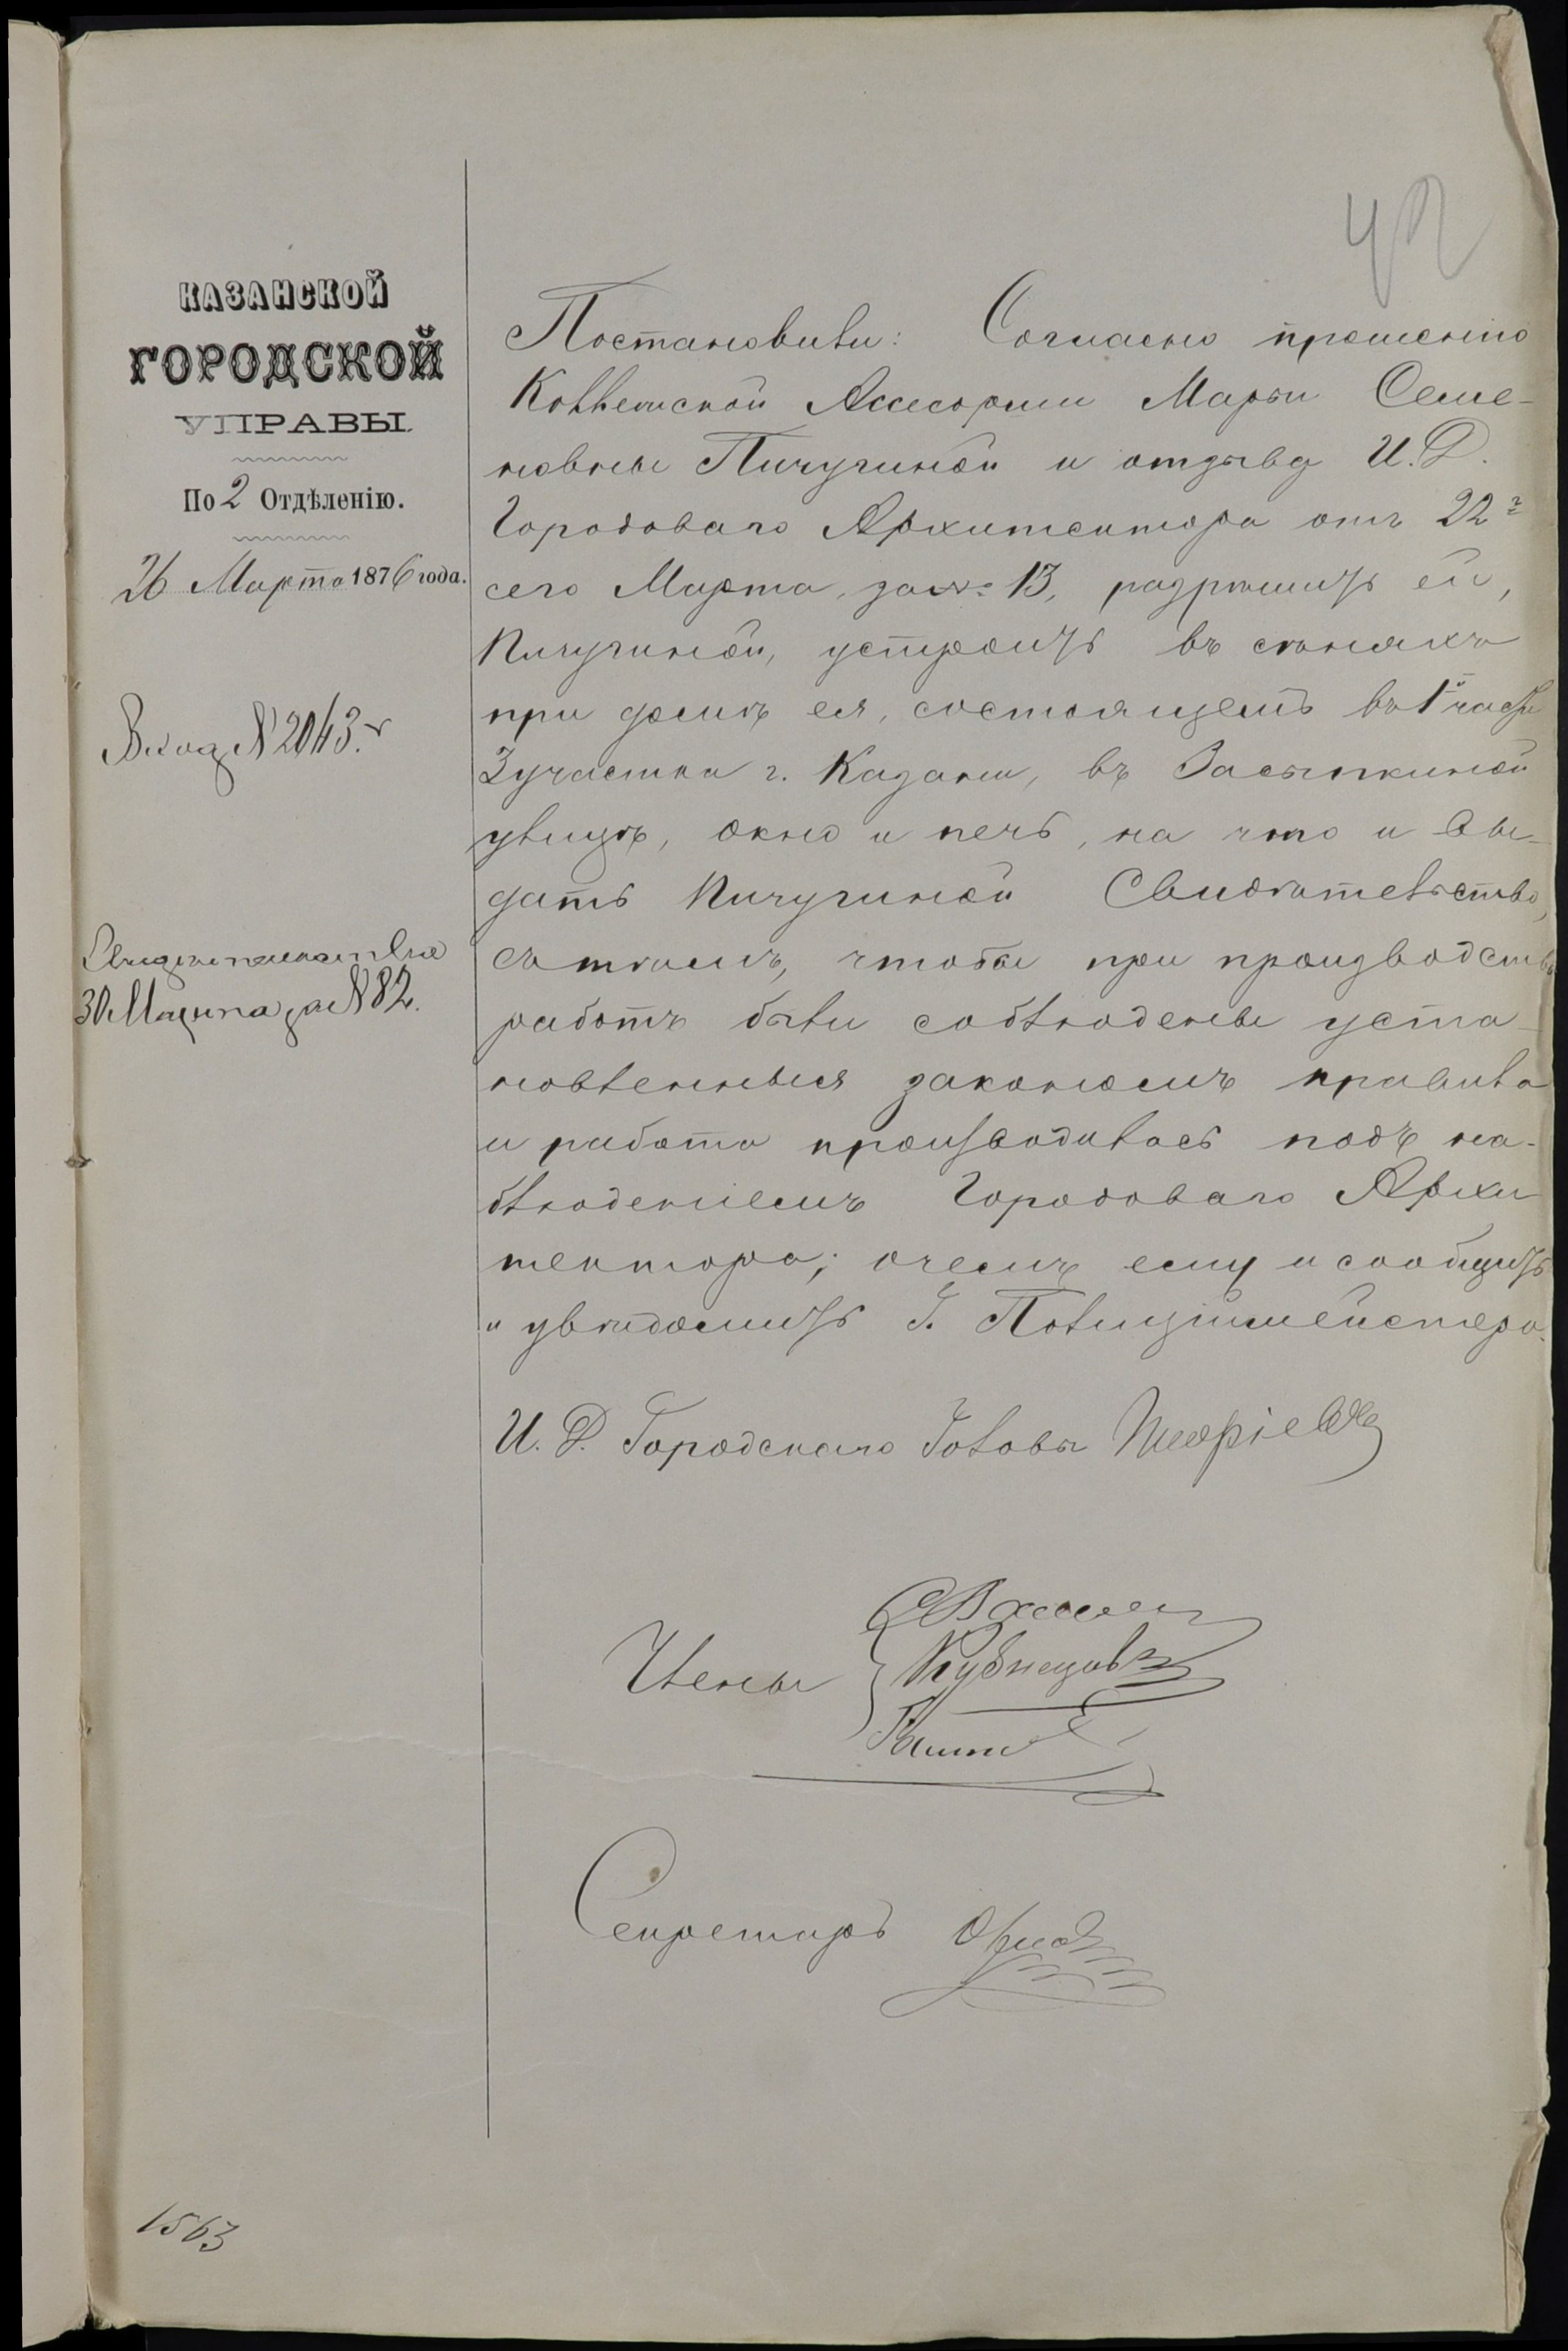 42
КАЗАНСКОЙ
ГОРОДСКОЙ
УПРАВЫ.
По 2 Отдѣленію.
26 Марта 1876 года.
Вход № 2043.
30 Марта за № 82.
Постановили: Согласно прошенію
Коллежской Ассесорши Марьи Семе-
новны Пичугиной и отзыву И. Д.
Городоваго Архитектора отъ 22го
сего Марта за № 13, разрѣшить ей,
Пичугиной, устроить въ сѣняхъ
при домѣ ея, состоящемъ въ 1й части
3 участка г. Казани, въ Засыпкиной
улицѣ, окно и печь, на что и вы-
дать Пичугиной Свидѣтельство,
съ тѣмъ, чтобы при производствѣ
работъ были соблюдены уста-
новленныя закономъ правила
и работа производилась подъ на-
блюденіемъ Городоваго Архи-
тектора; о чемъ ему и сообщить
и увѣдомить Г. Полицiймейстера.
И. Д. Городскаго Головы
Члены
Кузнецовъ
Секретарь
1563